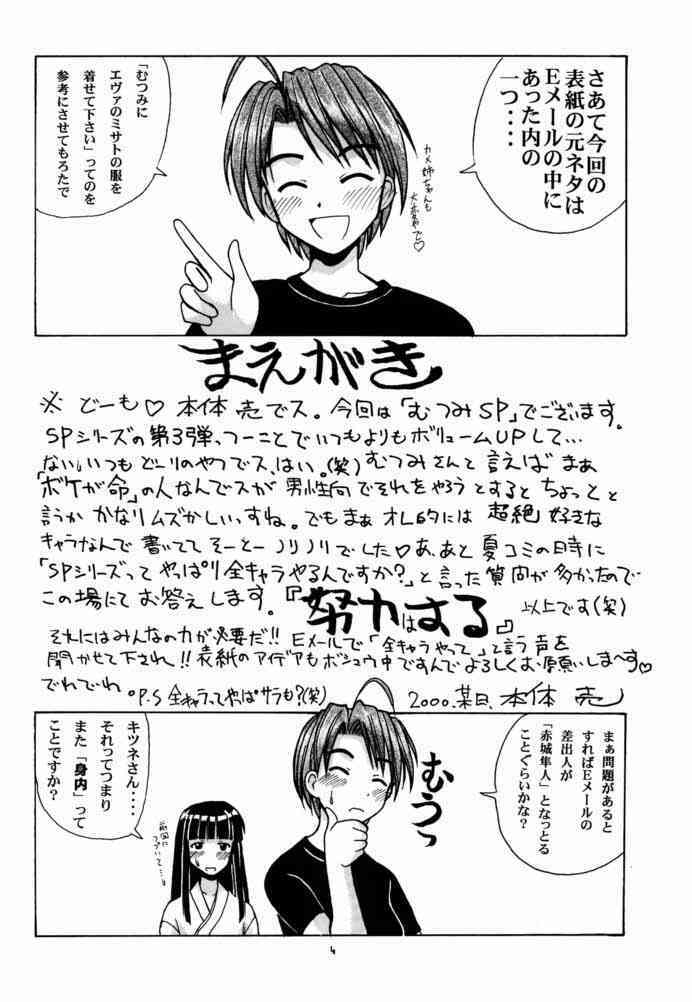 さあて今回の
表紙の元ネタは
Eメールの中に
あった内の
一つ・・・
カメ姉ちゃんも
大変やで♡
「むつみに
エヴァのミサトの服を
着せて下さい」ってのを
参考にさせてもろたで
まえがき
※ どーも♡ 本体 売でス。今回は「むつみSP」でございます。
SPシリーズの第3弾、つーことでいつもよりもボリュームUPして…
ない。いつもどーりのやつでス、はい。(笑) むつみさんと言えば まあ
「ボケが命」の人なんでスが 男性向でそれをやろうとすると ちょっと と
言うか かなりムズかしいっすね。でもまぁ オレ的には 超絶 好きな
キャラなんで 書いてて そーとー ノリノリでした♡ あ、あと 夏コミの時に
「SPシリーズって やっぱり全キャラやるんですか?」と言った質問が多かったので
この場にて お答えします。『努力はする』 以上です(笑)
それにはみんなの力が必要だ!! Eメールで「全キャラやって」と言う声を
聞かせて下され!! 表紙のアイデアもボシュウ中ですんで よろしくお願いしま〜す♡
でれでれ。 P.S 全キャラってやっぱサラも?(笑) 2000.某日、本体 売
まぁ問題があると
すればEメールの
差出人が
「赤城隼人」となっとる
ことぐらいかな?
むうっ
キツネさん・・・・
それってつまり
また「身内」って
ことですか?
前回に
つづいて…
4